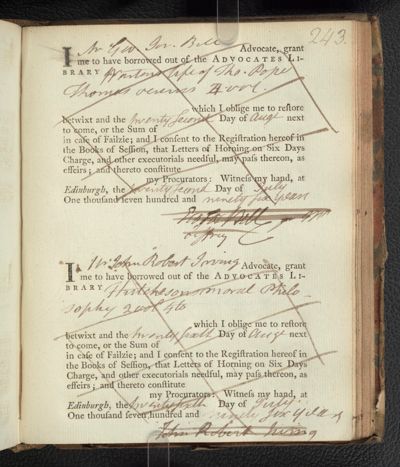 243.
I Mr Geo Jos. Bell Advocate, grant
me to have borrowed out of the ADVOCATES LI-
BRARY Wartons life of Tho. Pope
Thomas 4 vol.
which I oblige me to restore
betwixt and the twenty second Day of Augt next
to come, or the Sum of
in case of Failzie; and I consent to the Registration hereof in
the Books of Session, that Letters of Horning on Six Days
Charge, and other executorials needful, may pass thereon, as
effeirs; and thereto constitute
my Procurators: Witness my hand, at
Edinburgh, the twenty second Day of July
One thousand seven hundred and ninety six years
Bell
I Mr John Robert Irving Advocate, grant
me to have borrowed out of the ADVOCATES LI-
BRARY Hutchesons moral Philo-
sophy 2 vol 4to
which I oblige me to restore
betwixt and the twenty sixth Day of Augt next
to come, or the Sum of
in case of Failzie; and I consent to the Registration hereof in
the Books of Session, that Letters of Horning on Six Days
Charge, and other executorials needful, may pass thereon, as
effeirs; and thereto constitute
my Procurators: Witness my hand, at
Edinburgh, the twenty sixth Day of July
One thousand seven hundred and ninety six years
John Robert Irving